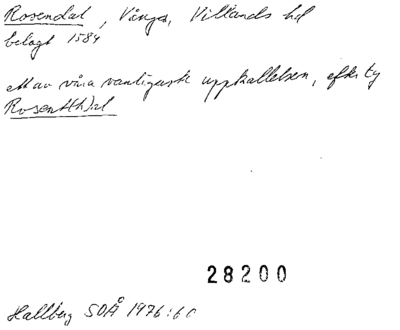 Rosendal, Vånga, Villands hd
belagt 1584
ett av våra vanligaste uppkallelser, efter ty
Rosent(h)al
28200
Hallberg SOÅ 1976:60